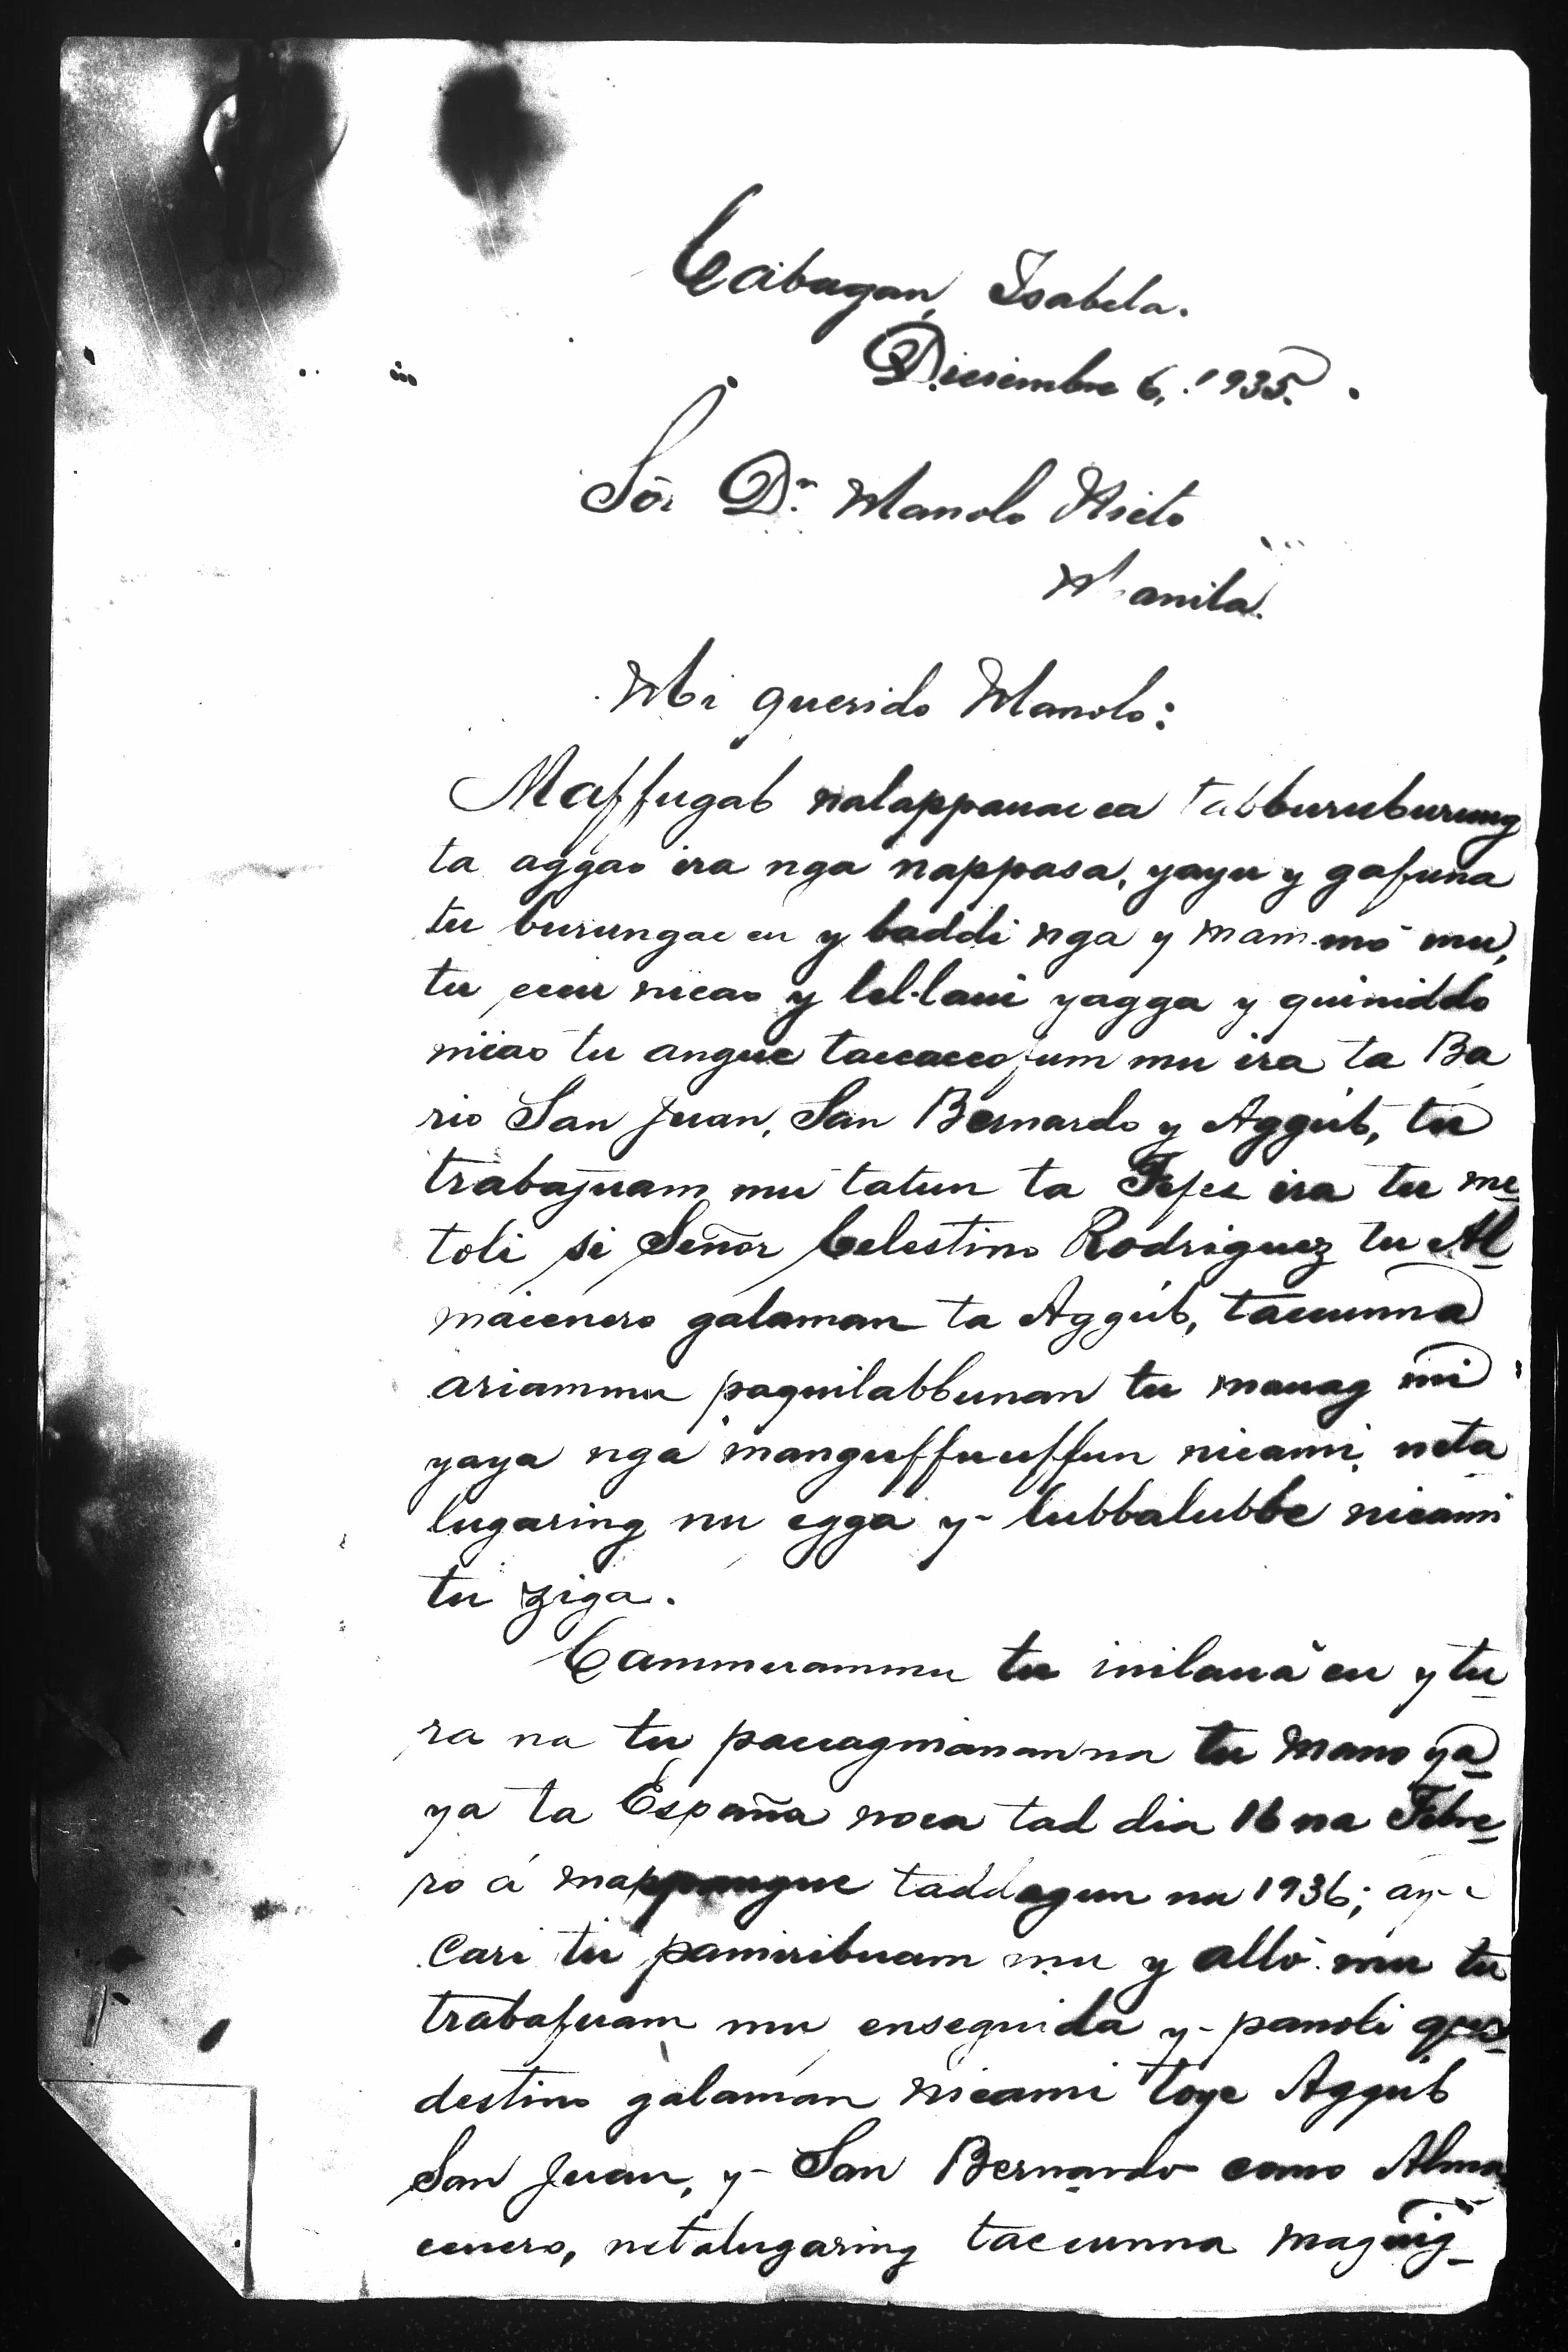 Cabagan, Isabela.
Diciembre 6, 1935.
Sōr Dn. Manolo Nieto
Manila.
Mi querido Manolo:
Maffugab nalappauac ca tabburuburung
ta aggao ira nga nappasa, yayu y gafuna
tu burungac cu y baddi nga y mammó mu,
tu nicao y lel-laui yagga y quiniddo
nicao tu angue mu ira ta Ba
rio San Juan, San Bernardo y Aggúb, tu
trabajuam mu tatun ta Fefes ira tu me
toli si Señor Celestino Rodriguez tu Al
macenero galaman ta Aggúb, tacunna
ariammu paguilabbunan tu mauag mi
yaya nga manguffuuffun nicami, neta
lugaring nu egga y- lubbalubbe nicami
tu ziga.
Cammuammu tu inilauá cu y tu-
ra na tu paccagnianan na tu Mano ya-
ya ta España noca tad dia 16 na Febre-
ro á mappangue taddagun na 1936;
cari tu pamiribuam mu y alló mu tu
trabajuam mu enseguida y- panoli
destino galaman nicami toye Aggúb
San Juan, y- San Bernardo como Alma
cenero, netalugaring tacunna maguig-